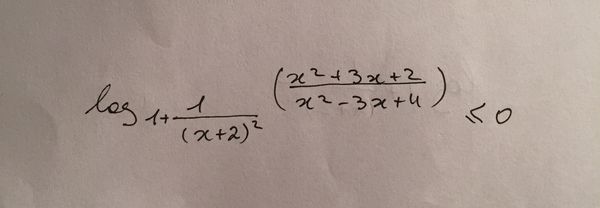 log_{1+\frac{1}{(x+2)^2}} \left( \frac{x^2+3x+2}{x^2-3x+4} \right) \leq 0